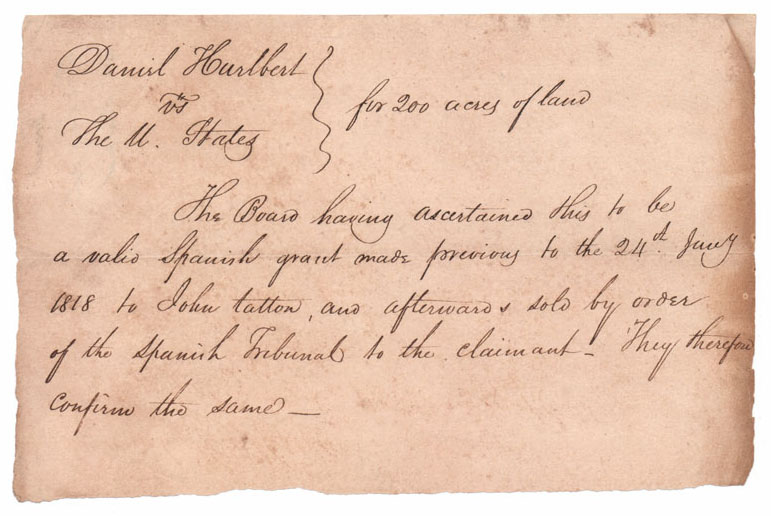 Daniel Hurlbert
vs
The U. States
for 200 acres of land
The Board having ascertained this to be
a valid Spanish grant made previous to the 24th. Jany
1818 to John tatton, and afterwards sold by order
of the Spanish Tribunal to the claimant – They therefore
confirm the same –